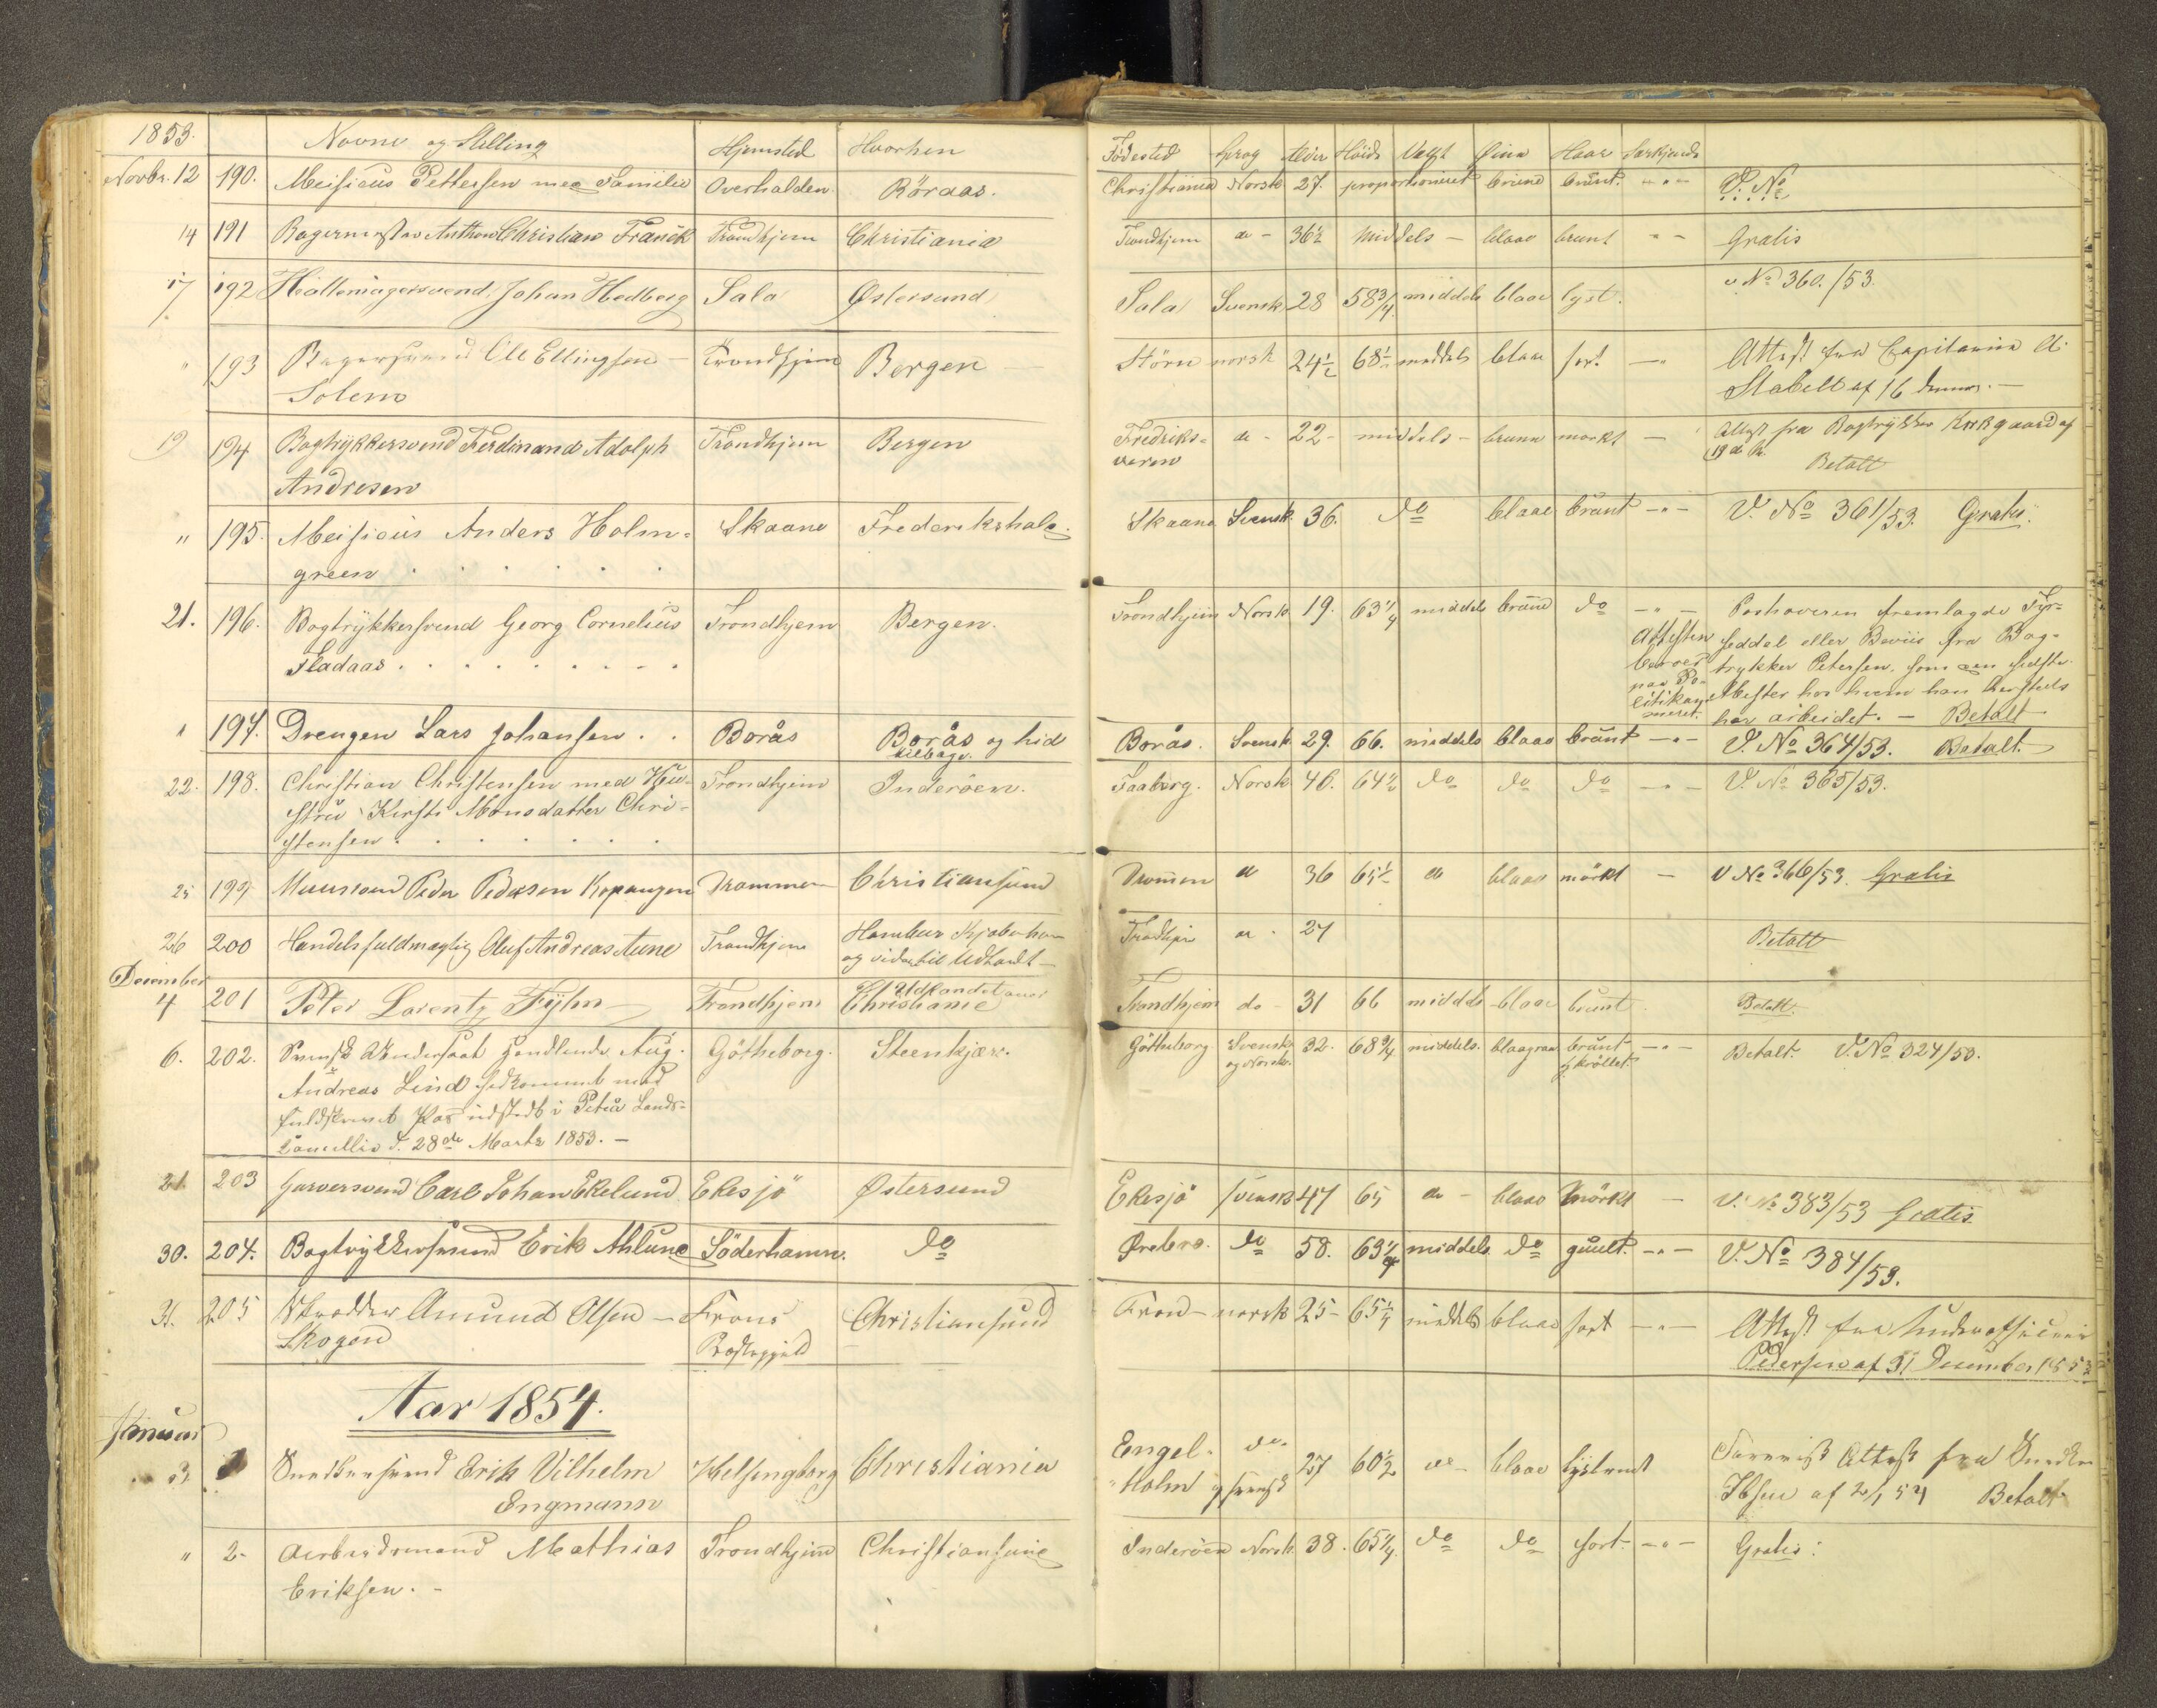 1853. Navne og Stilling Hjemsted Hvorhen Fødested Sprog Alder Høide Væxt Øine Haar Særkjende
Novbr. 12 190. Meisicus Pettersen med Familie Overhalden Röraas. Christiania Norsk 27. proportioneret brune brunt. - " - V. No
14 191 Bagermester Anthon Christian Franck Trondhjem Christiania Trondhjem do - 36½ Middels - blaae brunt " - Gratis
17 192 Hattemagersvend Johan Hedberg Sala Østersund Sala Svensk 28 58¾ middels blaae lyst. v No 360./53.
" 193 Bagersvend Ole Ellingsen - Trondhjem Bergen - Störn norsk 24½ 68½ middels blaae sort - " Attest fra Capitain A.
Solem Stabell af 16 dennes. -
19 194 Bogtrykkersvend Ferdinand Adolph Trondhjem Bergen Fredriks= do - 22 - middels - brune morkt - Attest fra Bogtrykker af
Andresen værn 19 d. Betalt
" 195. Meisicus Anders Holm= Skaane Frederikshald. Skaane Svensk. 36. do blaae brunt - " - V. No 361/53. Gratis.
green . . . . . .
21. 196. Bogtrykkersvend Georg Cornelius Trondhjem Bergen. Trondhjem Norsk. 19. 63¼ middels brune do - " - Pashaveren fremlagde Fyr=
Fladaas . . . . . . . . Attesten beroer paa Po= litikam= meret. seddel eller Beviis fra Bog=
trykker Petersen, som den sidste
Mester hos hvem han
har arbeidet. - Betalt
" 197. Drengen Lars Johansen . . Borås Borås og hid Borås. Svensk 29. 66. middels blaae brunt - " - V. No 364/53. Betalt.
tilbage.
22. 198. Christian Christensen med Hu= Trondhjem Inderöen. Faaborg. Norsk 40. 64½ do do do - " - V. No 365/53.
stru Kirsti Monsdatter Chri=
stensen . . . . . . .
25 199. Muursvend Peder Pedersen Kopangen Drammen Christiansund Drammen do 36 65½ do blaae mörkt - V No 366/53. Gratis
26 200 Handelsfuldmægtig Oluf Andreas Aune Trondhjem Hamburg Kjøbenhavn Trondhjem do - 27 Betalt
og videre til Udlandet -
December
4 201 Peter Lorentz Fyhn Trondhjem Udlandet over Trondhjem do - 31 66 middels - blaae brunt Betalt.
Christiania
6. 202. Svensk Undersaat Handlende Aug. Götheborg. Steenkjær. Götheborg Svensk 32. 68¾ middels. blaagraae brunt - " - Betalt. V. No 324/53.
Andreas Lind hidkommet med og Norsk. og krøllet.
Pas udstedt i Piteå Lands=
Cancellie d. 28de Marts 1853. -
21. 203 Garversvend Carl Johan Ekelund Ekesjö Østersund Ekesjö svensk 47 65 do - blaae mörkt - V. No 383/53 Gratis
30. 204. Bogtrykkersvend Erik Ahlund Söderhamn. do Ørebro. do 58. 63¼ middels do guult. - " - V. No 384/53.
31. 205 Skrædder Amund Olsen - Frons Christiansund Fron - norsk 25 - 65¼ middels blaae sort - " - Attest fra Underofficeer
Skogen Præstegjeld Pedersen af 31 December 1853
Aar 1854.
Januar
3. 1 Snedkersvend Erik Vilhelm Helsingborg Christiania Engel= do 27 60½ do - blaae lysbrunt Attest fra Snedker
Engmann Holm og svensk Ibsen af 2/1 54 Betalt
" 2 - Arbeidsmand Mathias Trondhjem Christiansund Inderöen Norsk. 38. 65¼ do do sort - " - Gratis.
Eriksen. -